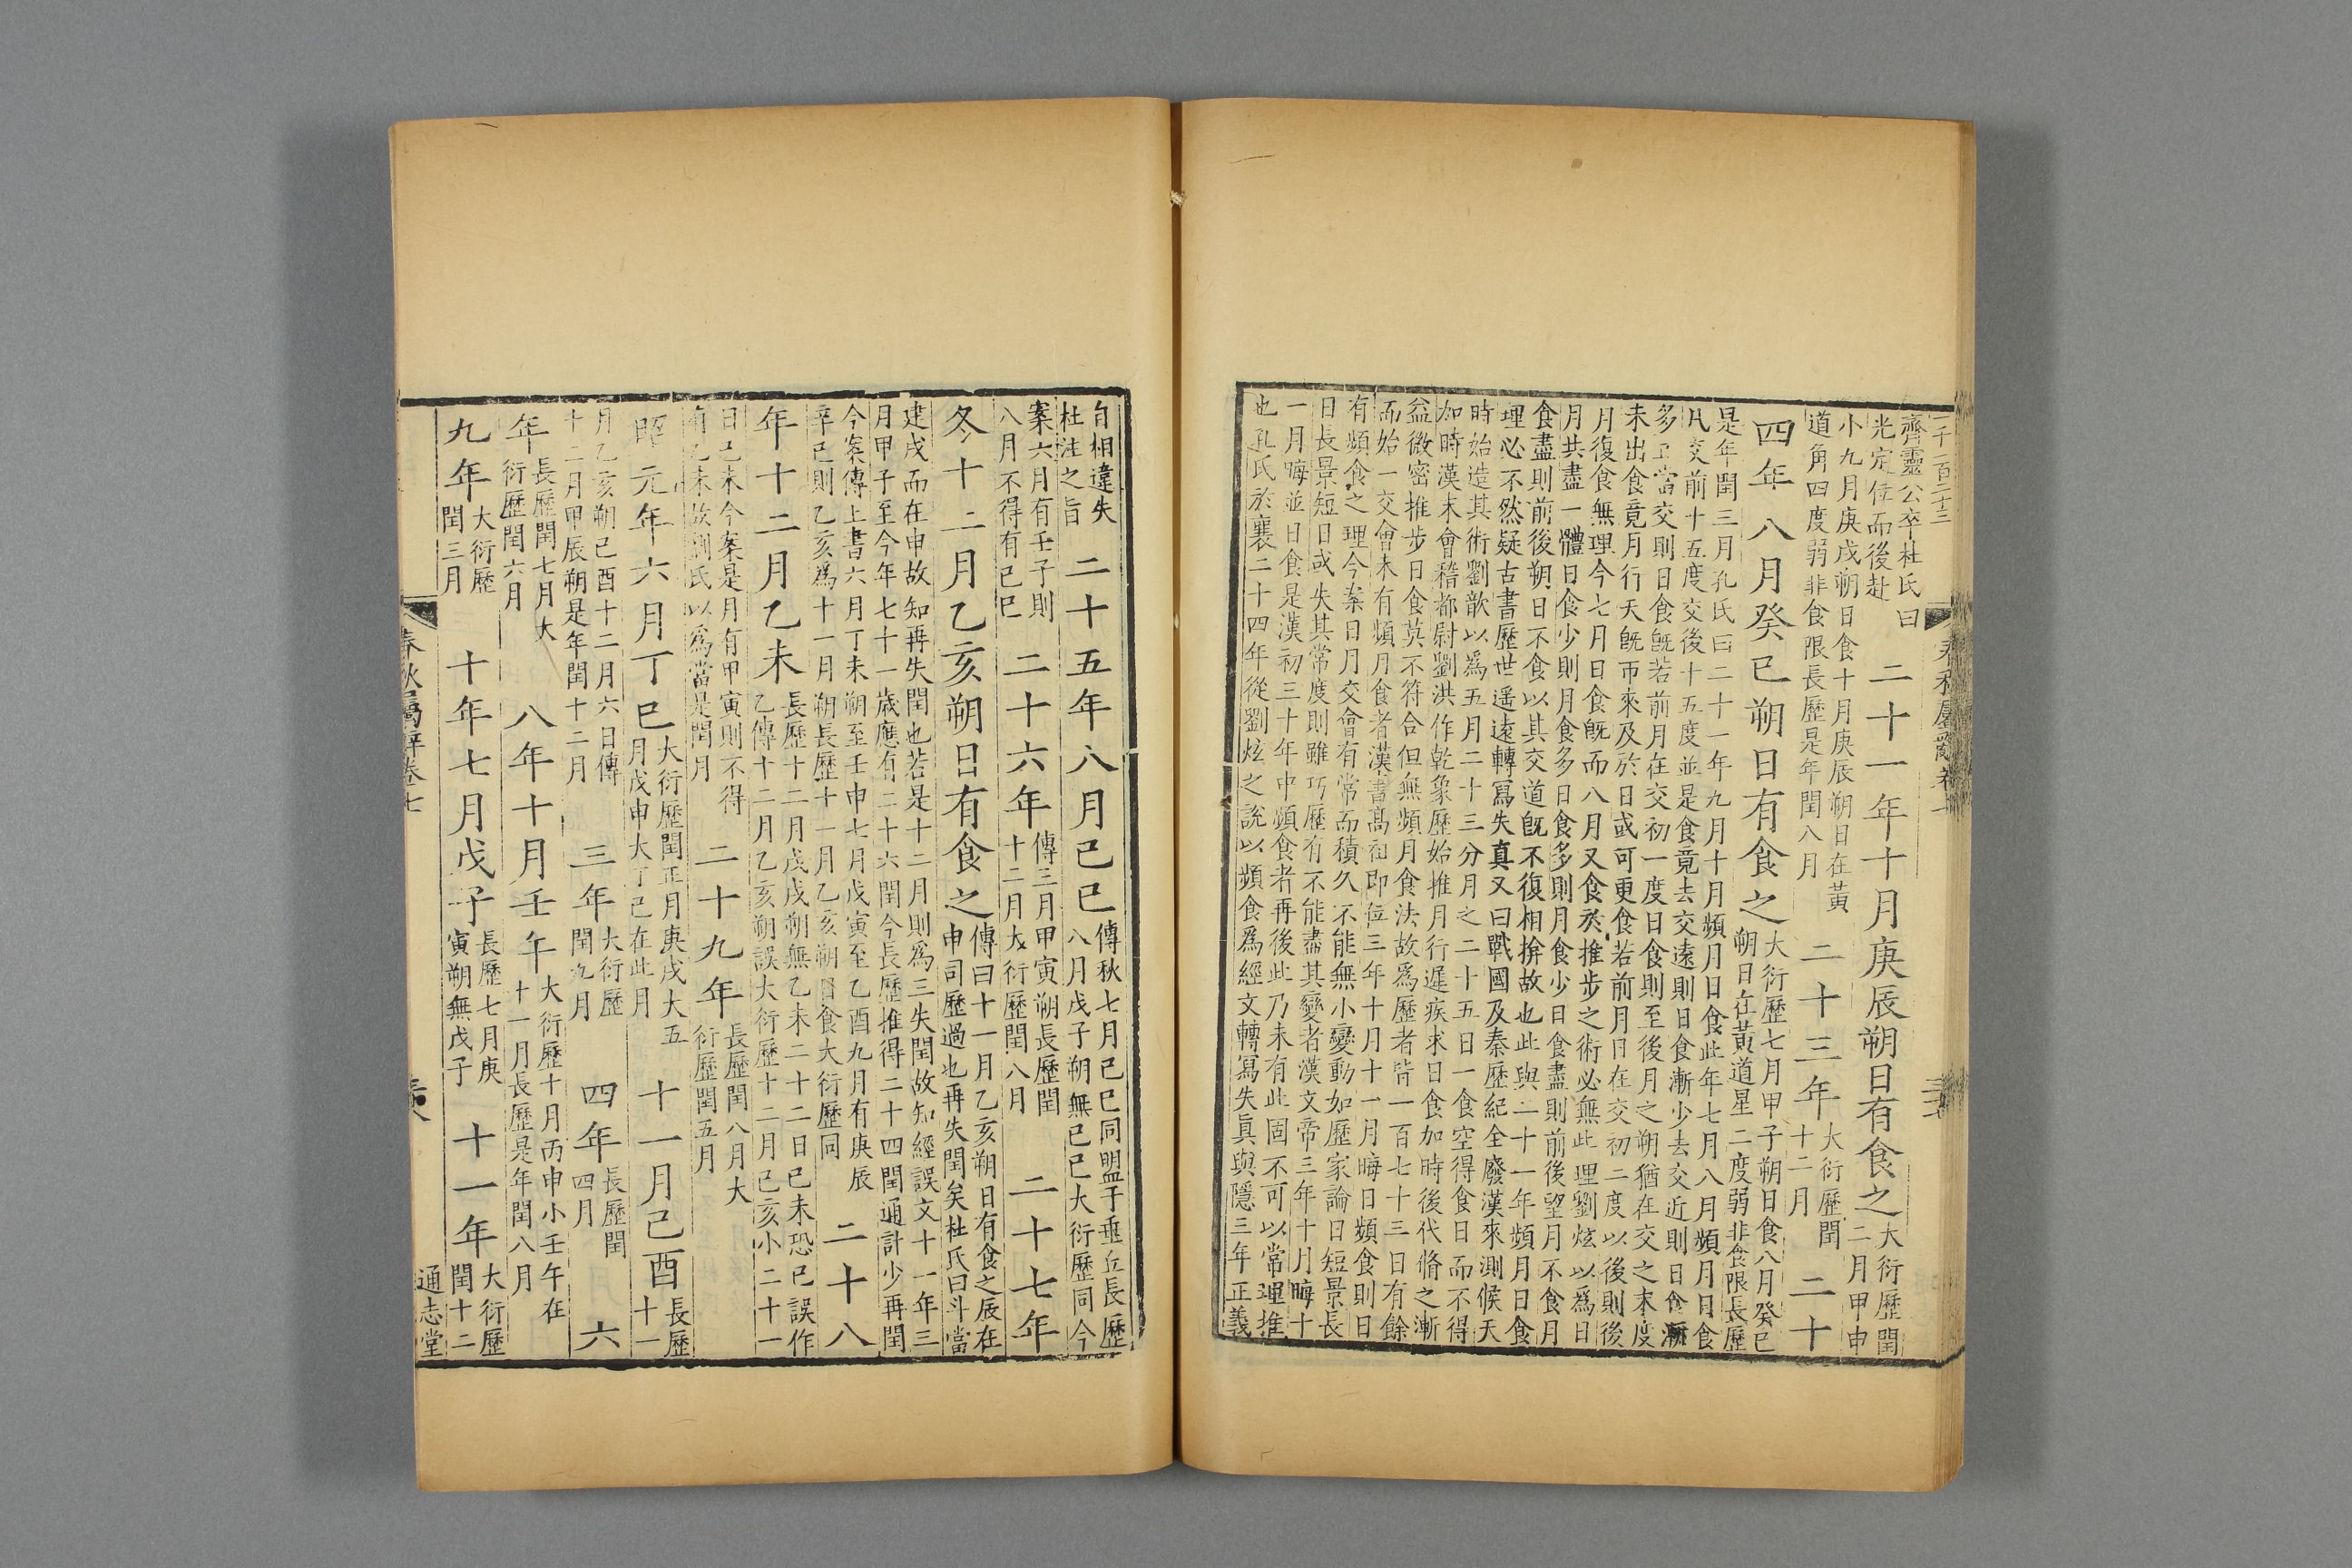 一千二百二十三
春秋屬辭卷七
齊靈公卒杜氏曰
光定位而後赴
二十一年十月庚辰朔日有食之
大衍歷閏
二月甲申
小九月庚戌朔日食十月庚辰朔日在黃
道角四度弱非食限長歷是年閏八月
二十三年
大衍歷閏
十二月
二十
四年八月癸巳朔日有食之
大衍歷七月甲子朔日食八月癸巳
朔日在黃道星二度弱非食限長歷
是年閏三月孔氏曰二十一年九月十月頻月日食此年七月八月頻月日食
凡交前十五度交後十五度並是食竟去交遠則日食漸少去交近則日食漸
多正當交則日食旣若前月在交初一度日食則至後月之朔猶在交之末度
未出食竟月行天旣帀來及於日或可更食若前月日在交初二度以後則後
月復食無理今七月日食旣而八月又食於推步之術必無此理劉炫以爲日
月共盡一體日食少則月食多日食多則月食少日食盡則前後望月不食月
食盡則前後朔日不食以其交道旣不復相掩故也此與二十一年頻月日食
理必不然疑古書歷世遙遠轉寫失真又曰戰國及秦歷紀全廢漢來測候天
時始造其術劉歆以爲五月二十三分月之二十五日一食空得食日而不得
加時漢末會稽都尉劉洪作乾象歷始推月行遲疾求日食加時後代脩之漸
益微密推步日食莫不符合但無頻月食法故爲歷者皆一百七十三日有餘
而始一交會未有頻月食者漢書高祖即位三年十月十一月晦日頻食則日
有頻食之理今案日月交會有常而積久不能無小變動如歷家論日短景長
日長景短日或失其常度則雖巧歷有不能盡其變者漢文帝三年十月晦十
一月晦並日食是漢初三十年中頻食者再後此乃未有此固不可以常理推
也孔氏於襄二十四年從劉炫之說以頻食爲經文轉寫失真與隱三年正義
自相違失
杜注之旨
二十五年八月己巳
傳秋七月己巳同盟于重丘長歷
八月戊子朔無己巳大衍歷同今
案六月有壬子則
八月不得有己巳
二十六年
傳三月甲寅朔長歷閏
十二月大衍歷閏八月
二十七年
冬十二月乙亥朔日有食之
傳曰十一月乙亥朔日有食之辰在
申司歷過也再失閏矣杜氏曰斗當
建戌而在申故知再失閏也若是十二月則爲三失閏故知經誤文十一年三
月甲子至今年七十一歲應有二十六閏今長歷推得二十四閏通計少再閏
今案傳上書六月丁未朔至壬申七月戊寅至乙酉九月有庚辰
辛巳則乙亥爲十一月朔長歷十一月乙亥朔日食大衍歷同
二十八
年十二月乙未
長歷十二月戊戌朔無乙未二十二日己未恐己誤作
乙傳十二月乙亥朔誤大衍歷十二月己亥小二十一
日己未今案是月有甲寅則不得
有乙未故劉氏以爲當是閏月
二十九年
長歷閏八月大
衍歷閏五月
昭元年六月丁巳
大衍歷閏正月庚戌大五
月戊申大丁巳在此月
十一月己酉
長歷
十一
月乙亥朔己酉十二月六日傳
十二月甲辰朔是年閏十二月
三年
大衍歷
閏九月
四年
長歷閏
四月
六
年
長歷閏七月大
衍歷閏六月
八年十月壬午
大衍歷十月丙申小壬午在
十一月長歷是年閏八月
九年
大衍歷
閏三月
十年七月戊子
長歷七月庚
寅朔無戊子
十一年
大衍歷
閏十二
春秋屬辭卷七
通志堂